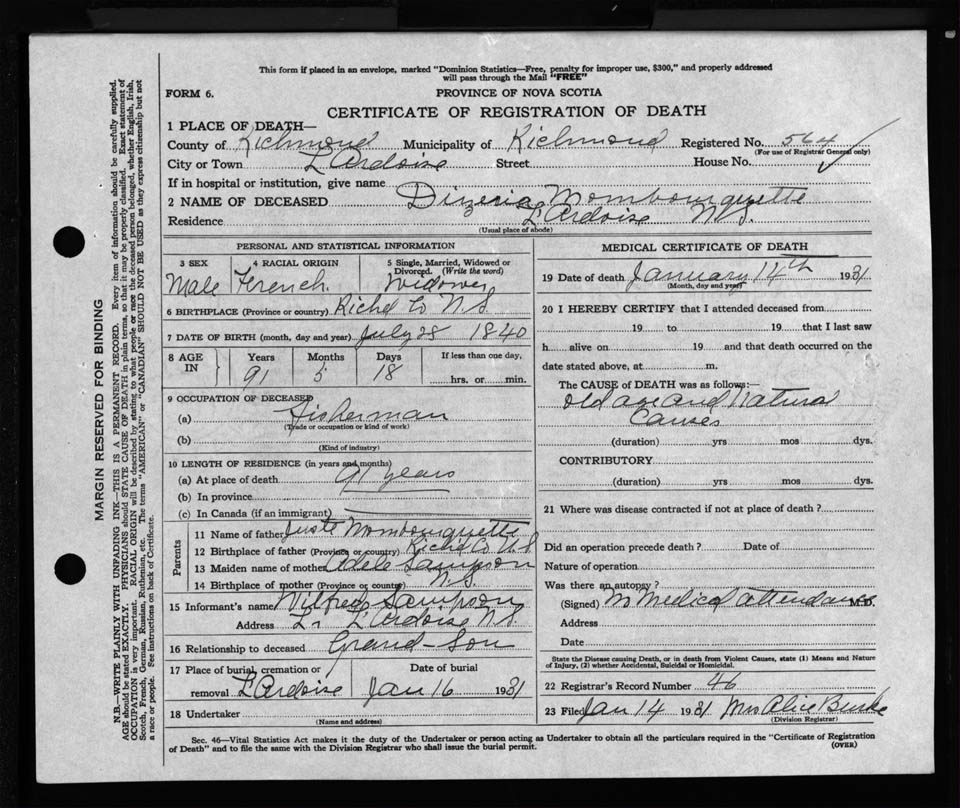 This form if placed in an envelope, marked "Dominion Statistics—Free, penalty for improper use, $300," and properly addressed
will pass through the Mail "FREE"
FORM 6.
PROVINCE OF NOVA SCOTIA
CERTIFICATE OF REGISTRATION OF DEATH
1 PLACE OF DEATH—
County of Richmond Municipality of Richmond Registered No. 564
(For use of Registrar General only)
City or Town L'Ardoise Street House No.
If in hospital or institution, give name
2 NAME OF DECEASED Mombourquette
Residence L'Ardoise N.S.
(Usual place of abode)
PERSONAL AND STATISTICAL INFORMATION
3 SEX 4 RACIAL ORIGIN 5 Single, Married, Widowed or
Divorced. (Write the word)
Male French Widower
6 BIRTHPLACE (Province or country) Richd Co N.S.
7 DATE OF BIRTH (month, day and year) July 28 1840
8 AGE IN Years Months Days If less than one day,
91 5 18 hrs. or min.
9 OCCUPATION OF DECEASED
(a) Fisherman
(Trade or occupation or kind of work)
(b)
(Kind of industry)
10 LENGTH OF RESIDENCE (in years and months)
(a) At place of death 91 years
(b) In province
(c) In Canada (if an immigrant)
Parents
11 Name of father Juste Mombourquette
12 Birthplace of father (Province or country) Richd Co N.S
13 Maiden name of mother Adele Sampson
14 Birthplace of mother (Province or country) N.S.
15 Informant's name Wilfred Sampson
Address L'Ardoise N.S.
16 Relationship to deceased Grand-Son
17 Place of burial, cremation or Date of burial
removal L'Ardoise Jan 16 1931
18 Undertaker
(Name and address)
MEDICAL CERTIFICATE OF DEATH
19 Date of death January 14th 1931
(Month, day and year)
20 I HEREBY CERTIFY that I attended deceased from
19 to 19 that I last saw
h alive on 19 and that death occurred on the
date stated above, at m.
The CAUSE of DEATH was as follows:—
old age and Natural
Causes
(duration) yrs mos dys.
CONTRIBUTORY
(duration) yrs mos dys.
21 Where was disease contracted if not at place of death?
Did an operation precede death? Date of
Nature of operation
Was there an autopsy?
(Signed) No Medical attendance M.D.
Address
Date
State the Disease causing Death, or in death from Violent Causes, state (1) Means and Nature
of Injury, (2) whether Accidental, Suicidal or Homicidal.
22 Registrar's Record Number 46
23 Filed Jan 14 1931 Mrs Alice Burke
(Division Registrar)
Sec. 46—Vital Statistics Act makes it the duty of the Undertaker or person acting as Undertaker to obtain all the particulars required in the "Certificate of Registration
of Death" and to file the same with the Division Registrar who shall issue the burial permit.
(OVER)
MARGIN RESERVED FOR BINDING
N.B.—WRITE PLAINLY WITH UNFADING INK—THIS IS A PERMANENT RECORD. Every item of information should be carefully supplied.
AGE should be stated EXACTLY. PHYSICIANS should STATE CAUSE OF DEATH in plain terms, so that it may be properly classified. Exact statement of
OCCUPATION is very important. RACIAL ORIGIN will be described by stating to what people or race the deceased person belonged, whether English, Irish,
Scotch, French, German, Russian, Ruthenian, etc. The terms "AMERICAN" or "CANADIAN" SHOULD NOT BE USED as they express citizenship but not
a race or people. See instructions on back of Certificate.